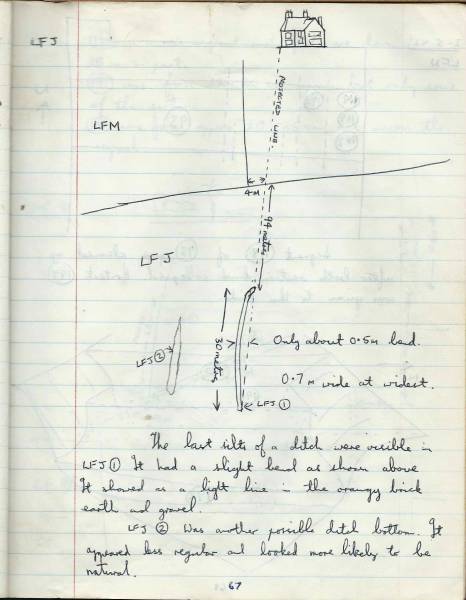 LFJ
PROJECTED LINE.
LFM
4M
94 metres
LFJ
30 metres
Only about 0.5m bend.
LFJ ②
0.7m wide at widest.
LFJ ①
The last silts of a ditch were visible in
LFJ ① It had a slight bend as shown above
It showed as a light line in the orangy brick
earth and gravel.
LFJ ② Was another possible ditch bottom. It
appeared less regular and looked more likely to be
natural.
67